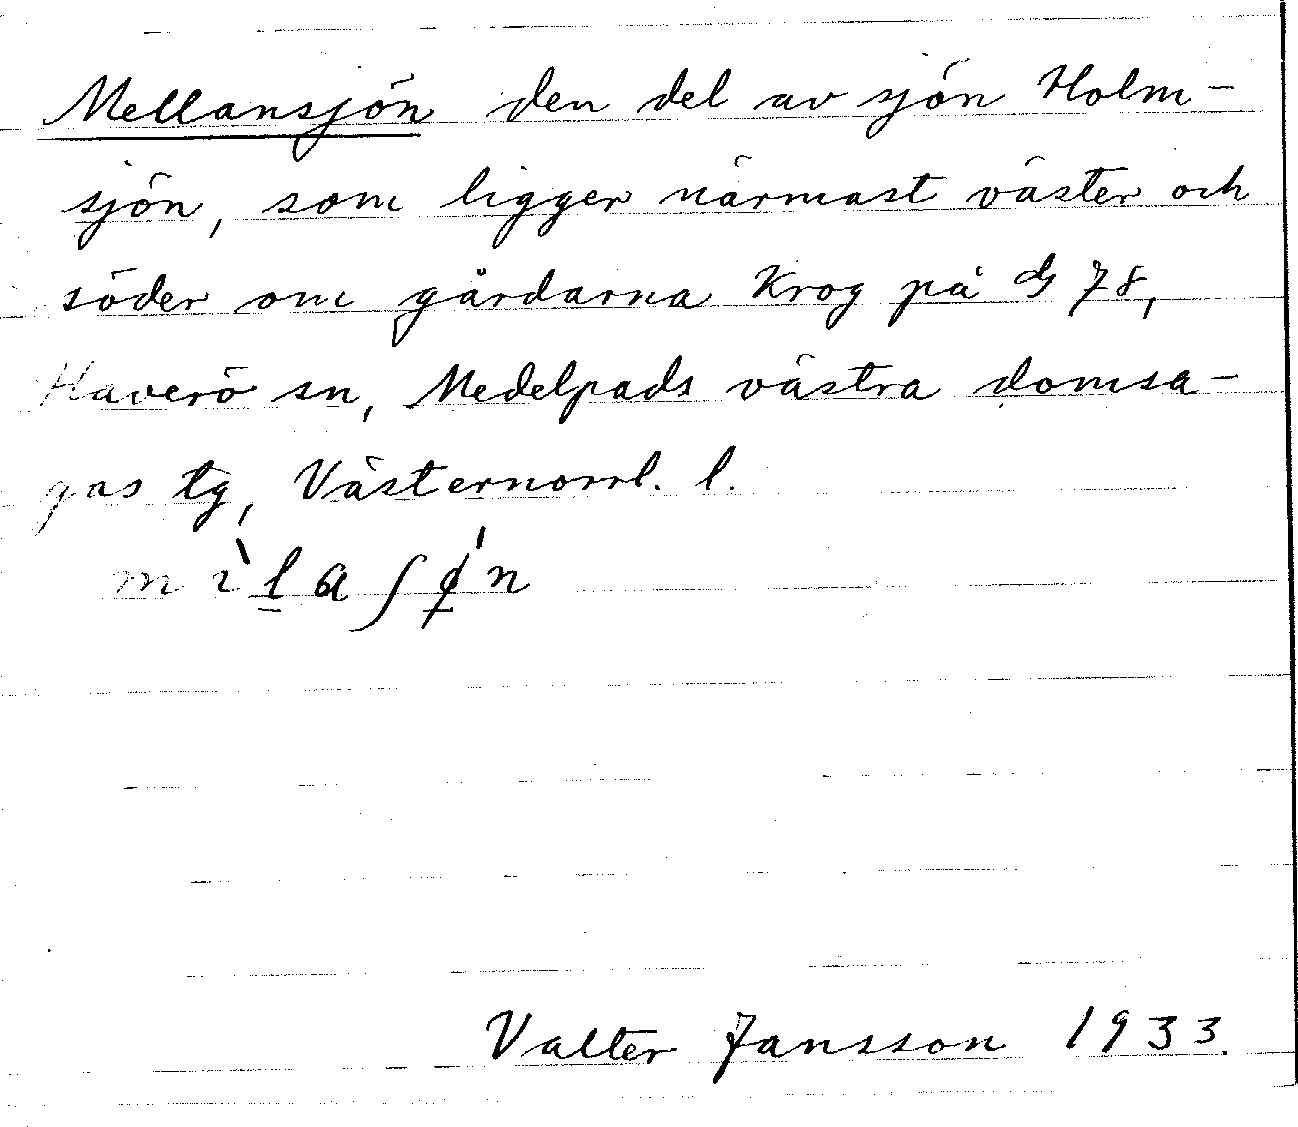 Mellansjön den del av sjön Holm-
sjön, som ligger närmast väster och
söder om gårdarna Krog på G 78,
Haverö sn, Medelpads västra domsa-
gas tg, Västernorrl. l.
mìl̲aʃǿ̲n
Valter Jansson 1933.